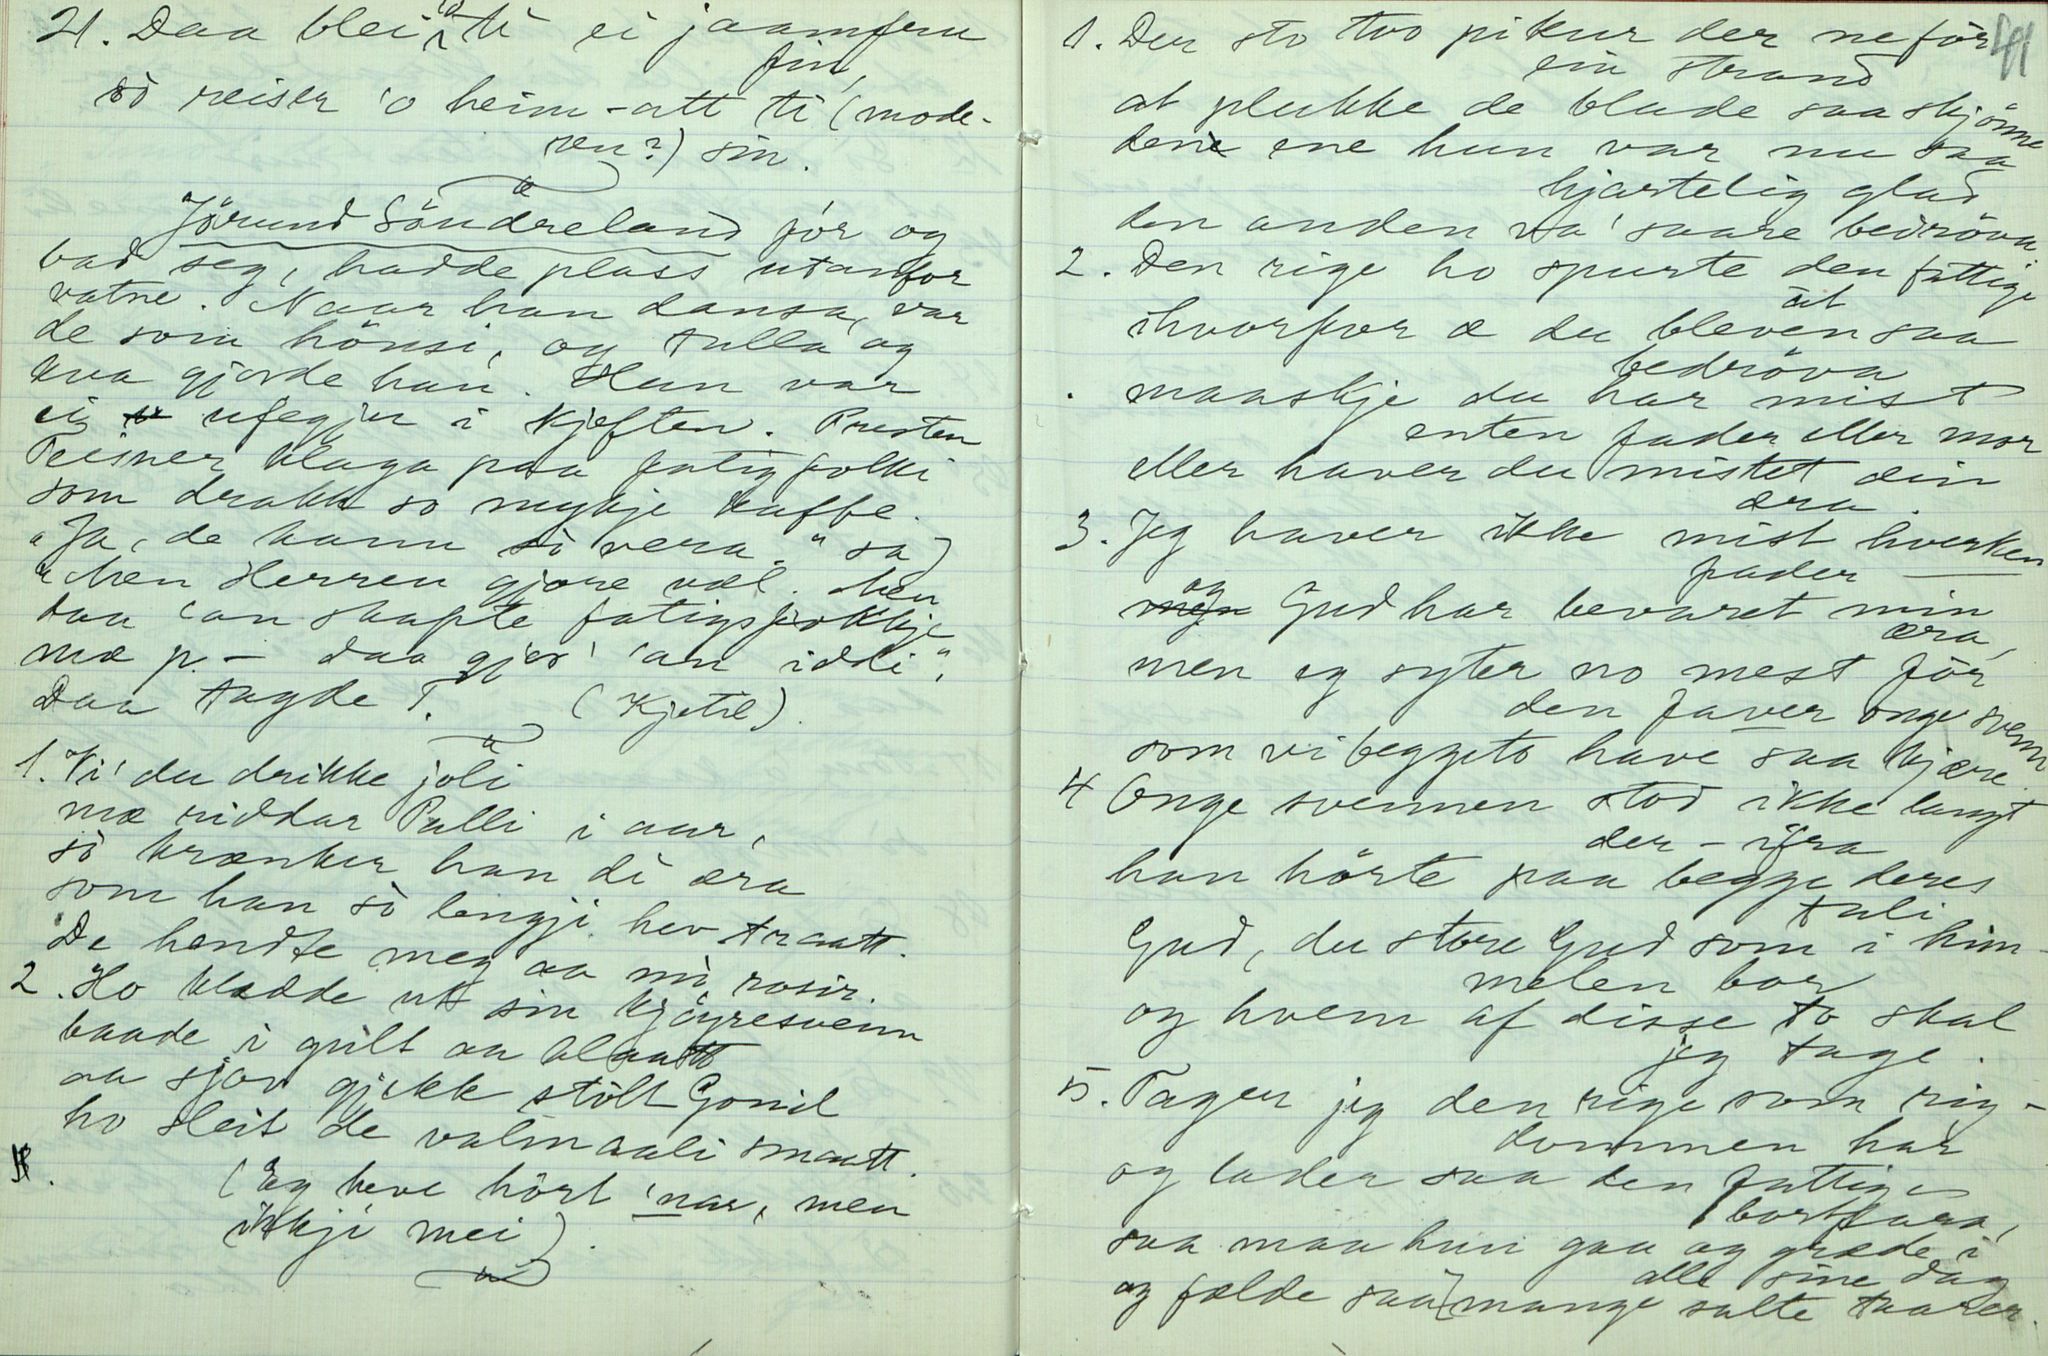 21. Daa blei 'o ti ei jaamfru
fin,
sò reiser 'o heim-att ti (mode-
ren?) sin.
Jörund Söndreland fór og
bad seg, hadde plass utanfor
vatne. Naar han dansa, var
de som hönsi, og tulla og
kva gjorde han. Han var
ei ufegjur i kjeften. Presten
Teisner klaga paa fatigfolki
som drakk so mykje kaffe.
"Ja, de kann so vera." sa
"Men Herren gjore vel. Men
daa 'an skapte fatigfolkje
mæ p. - daa gjor' 'an iddi".
Daa tagde T. (Kjetil).
1. Vi' du drikke joli
mæ riddar Palli i aar,
sò krænker han di æra
som han sò lengji hev traatt.
De hendte meg aa mi rosir.
2. Ho klædde ut sin kjöyresvenn
baade i gult aa blaatt
aa sjov gjekk stolt Gonil
ho sleit de valmaali smaatt.
(Eg heve hört 'nar, men
ikkji mei).
41
1. Der sto tvo pikur der ne för
ein strand
at plukke de blade saa skjönne
den ene hun var nu saa
hjærtelig glad
den anden va' saare bedröva.
2. Den rige ho spurte den fattige
at
ihvorfor æ du bleven saa
bedröva
maaskje du har mist
enten fader eller mor
eller haver du mistet din
æra.
3. Jeg haver ikke mist hverken
fader
og Gud har bevaret min
æra,
men eg syter no mest för
den faver onge svenn
som vi beggeto have saa kjære.
4 Onge svennen stod ikke langt
der-ifra
han hörte paa begge deres
tali
Gud, du store Gud som i him-
melen bor
og hvem af disse to skal
jeg tage.
5. Tager jeg den rige som rig-
dommen har
og lader saa den fattige
bortfara,
saa maa hun gaa og græde i
alle sine dag
og fælde saa mange salte taarer.